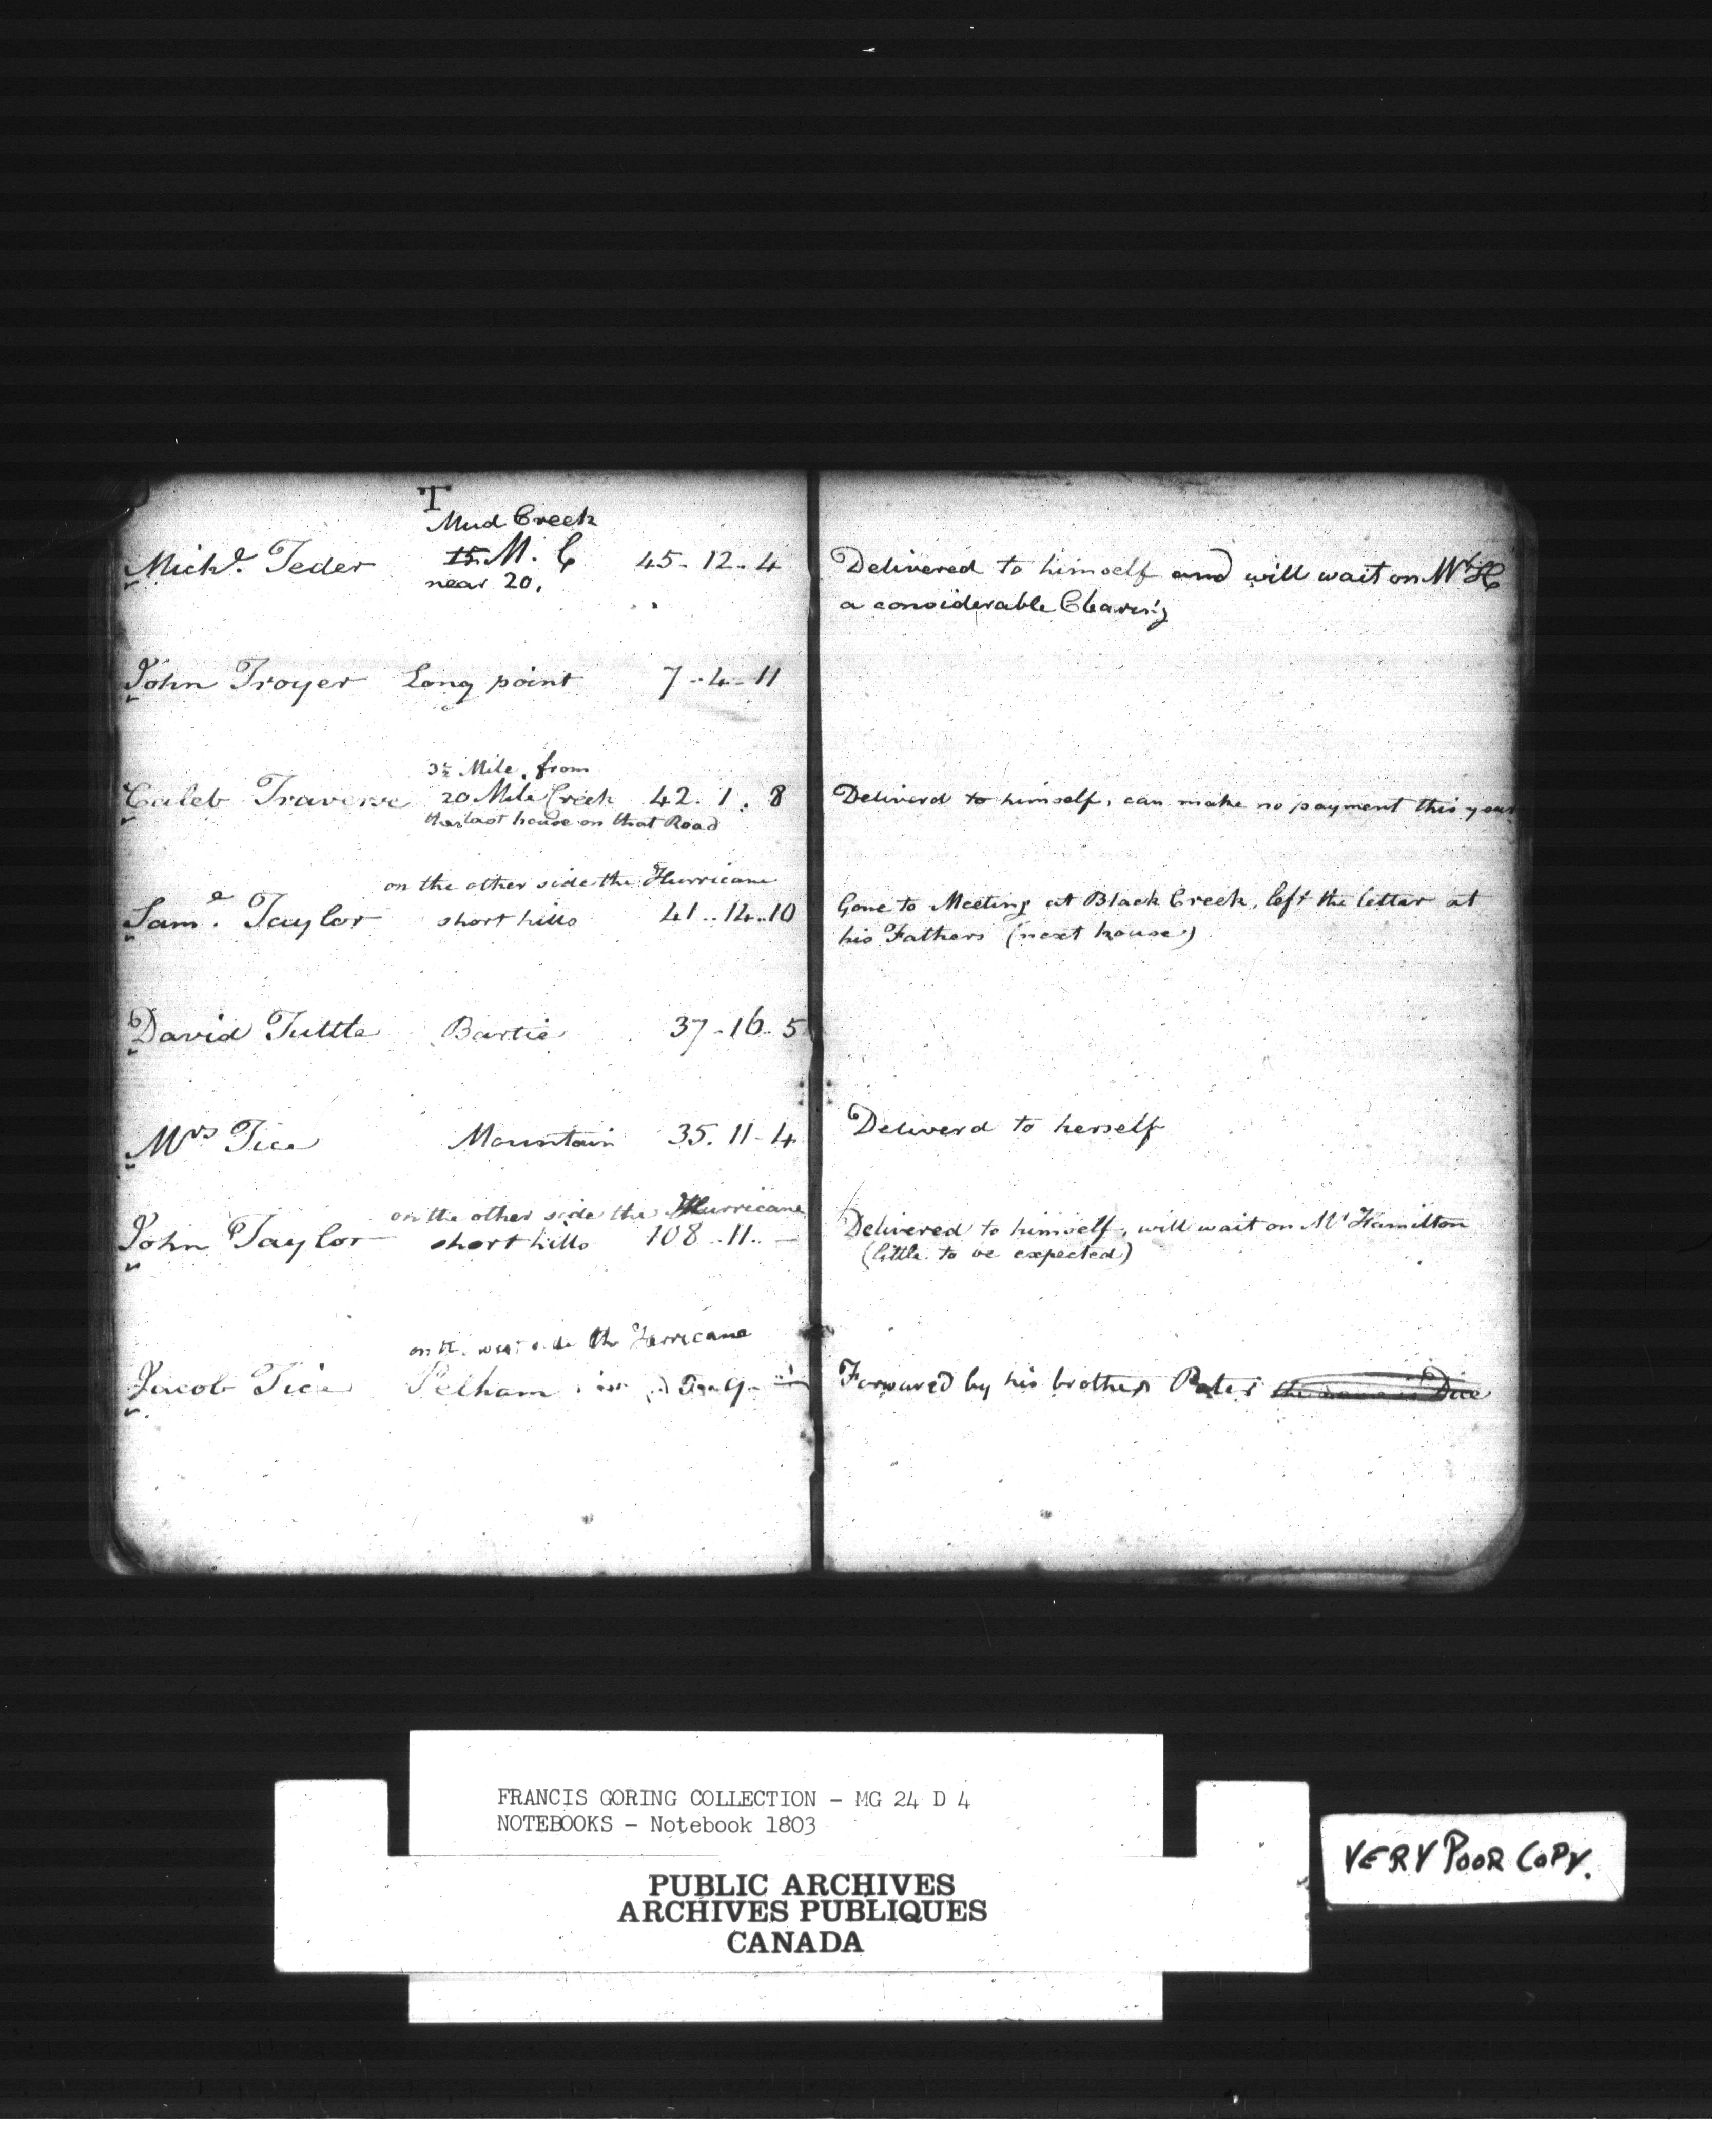 T
Mud Creek
Michl. Teder 15 M. C 45-12-4 Delivered to himself and will wait on Mr H
near 20. a considerable Clearing
John Troyer Long point 7-4-11
3½ Mile from
Caleb Traverse 20 Mile Creek 42. 1. 8 Deliverd to himself, can make no payment this year
the last house on that Road
on the other side the Hurricane
Saml. Taylor short hills 41..14..10 Gone to Meeting at Black Creek, left the letter at
his Fathers (next house)
David Tuttle Bartie 37-16-5
Mrs Tice Mountain 35. 11-4 Deliverd to herself
on the other side the Hurricane
John Taylor short hills 108..11..- Delivered to himself, will wait on Mr Hamilton
(little to be expected)
the Hurricane
Jacob Tice Pelham Forward by his brother Peter Due
FRANCIS GORING COLLECTION - MG 24 D 4
NOTEBOOKS - Notebook 1803
PUBLIC ARCHIVES
ARCHIVES PUBLIQUES
CANADA
VERY POOR COPY.